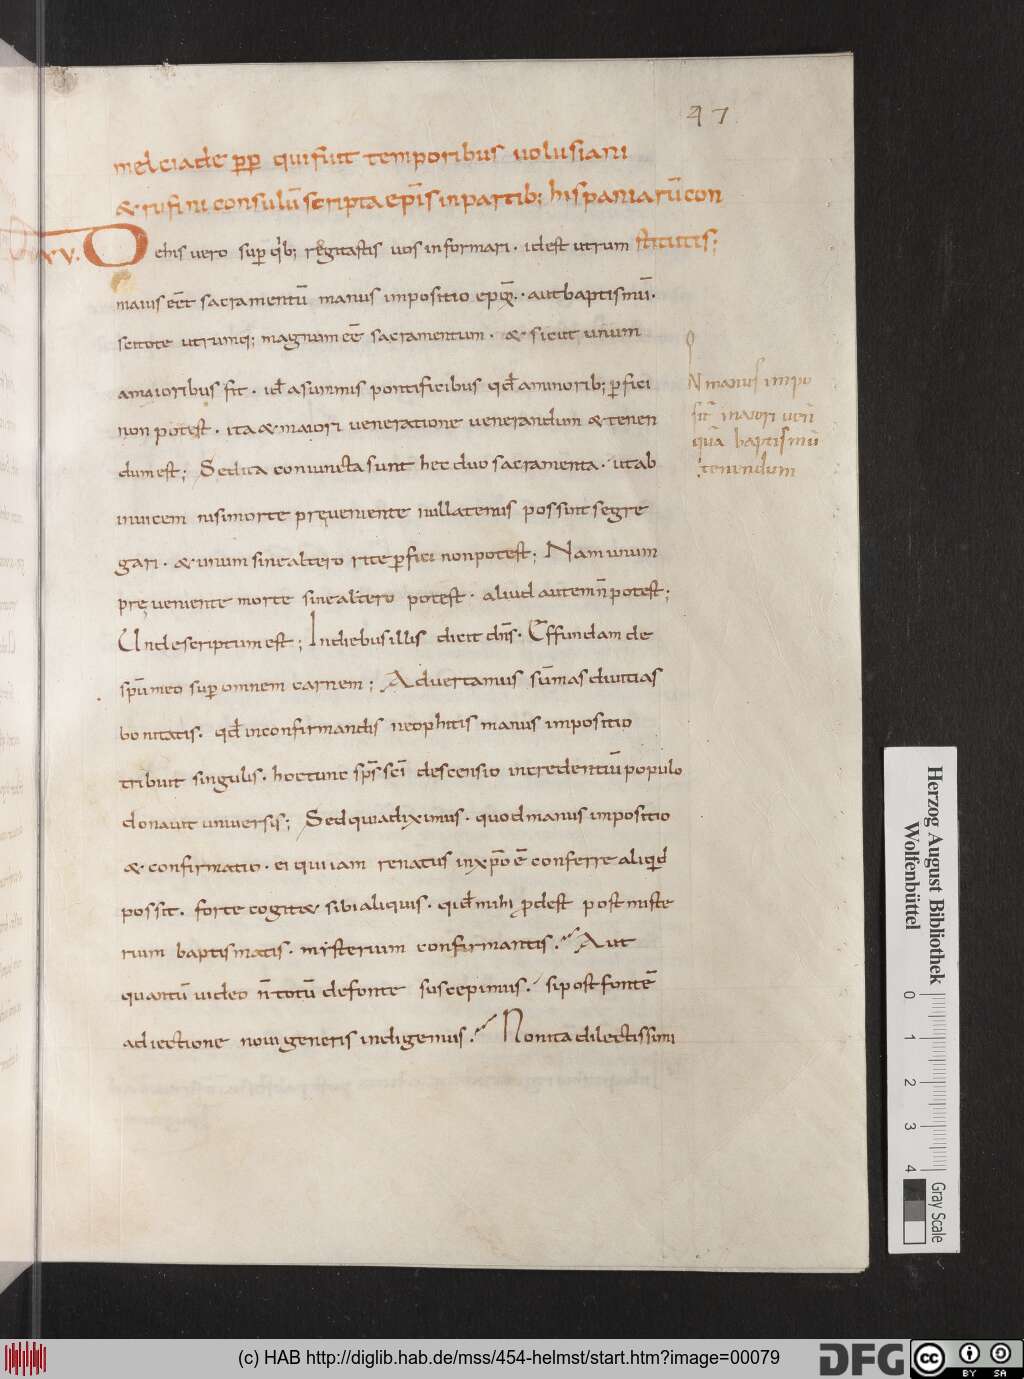 47
melciade pp̄ qui fuit temporibus uolusiani
& rufini consulū scripta ep̄is in partib; hispaniarū con
xv. De his vero sup̱ q̇b; rogitastis vos informari · id est utrum stitutis;
maius eēt sacramentū manus impositio ep̄oꝝ · aut baptismū ·
scitote utrumq; magnum eē sacramentum · & sicut unum
amaioribus fit · id̄ asummis pontificibus qd̄ aminorib; ꝑfici
non potest · ita & maiori ueneratione uenerandum & tenen
dum est; Sed ita coniuncta sunt hec duo sacramenta · ut ab
inuicem nisi morte pręueniente nullatenus possint segre
gari · & unum sine altero rite ꝑfici non potest; Nam unum
pręueniente morte sine altero potest · aliud autem n̄ potest;
Unde scriptum est; In diebus illis dicit dn̄s · Effundam de
spū meo sup̱ omnem carnem; Aduertamus sūmas diuitias
bonitatis · qd̄ in confirmandis neophitis manus impositio
tribuit singulis · hoc tunc sp̄s sc̄i descensio in credentiū populo
donauit uniuersis; Sed quia diximus · quod manus impositio
& confirmatio · ei qui iam renatus in xp̄o ē conferre aliqd̄
possit · forte cogit& sibi aliquis · qid mihi ꝓdest post miste
rium baptismatis · mysterium confirmantis · Aut
quantū uideo n̄ totū de fonte suscepimus · si post fontē
adiectione noui generis indigemus · Non ita dilectissimi
N manus impo
sit̄ maiori uen̄
quā baptismū
tenendum
Herzog August Bibliothek
Wolfenbüttel
0 1 2 3 4
Gray Scale
(c) HAB http://diglib.hab.de/mss/454-helmst/start.htm?image=00079
DFG
cc BY SA